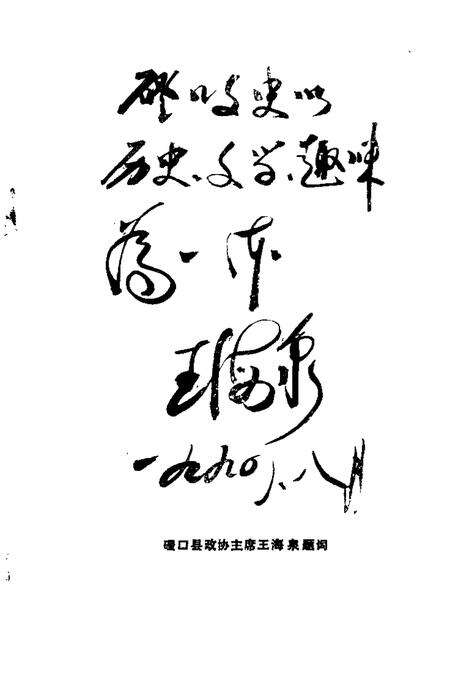 磴口文史以
历史、文学、趣味
為一体
王海泉
一九九〇.八月
磴口县政协主席王海泉题词